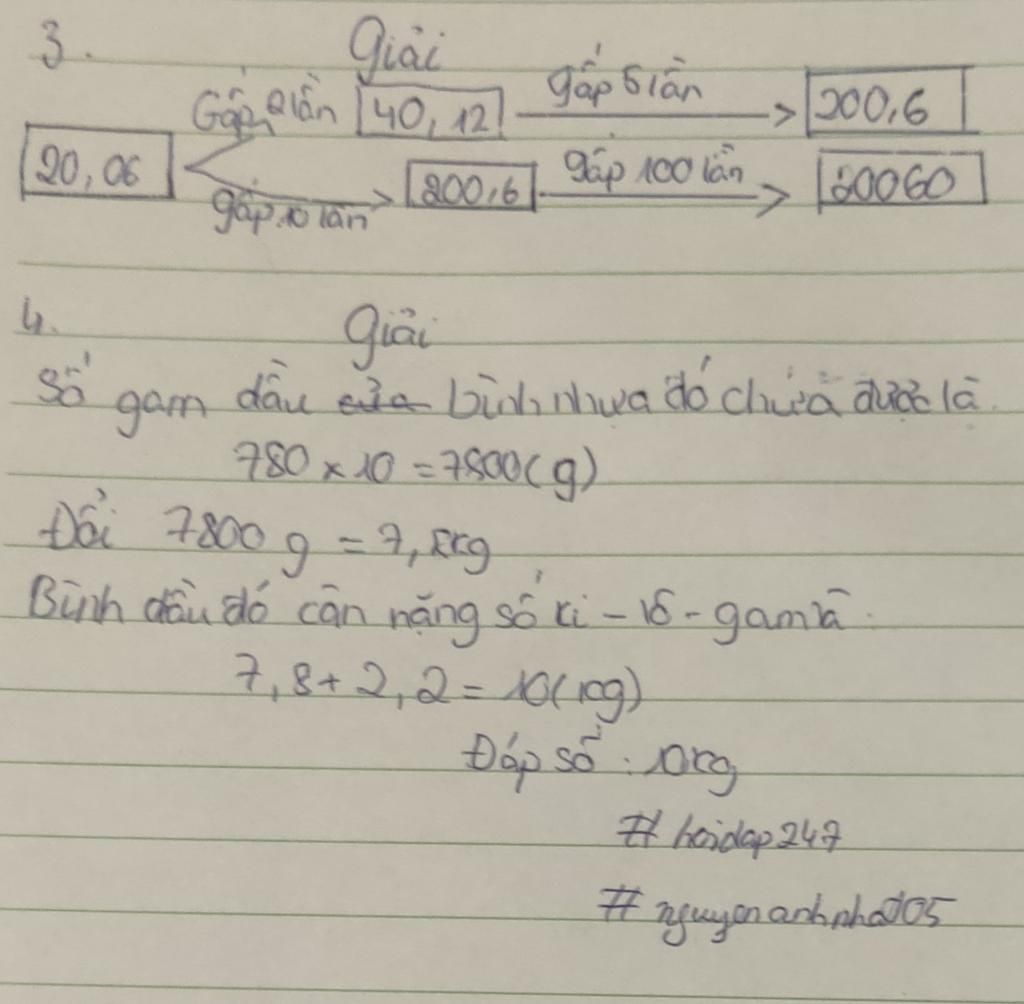 3. Giải
Gấp 2 lần 40,12 gấp 5 lần 200,6
20,06
gấp 10 lần 200,6 gấp 100 lần 20060
4. Giải
Số gam dầu của bình nhựa đó chứa được là
780 x 10 = 7800(g)
Đổi 7800g = 7,8kg
Bình dầu đó cân nặng số ki-lô-gam là:
7,8 + 2,2 = 10(kg)
Đáp số: 10kg
# hoidap247